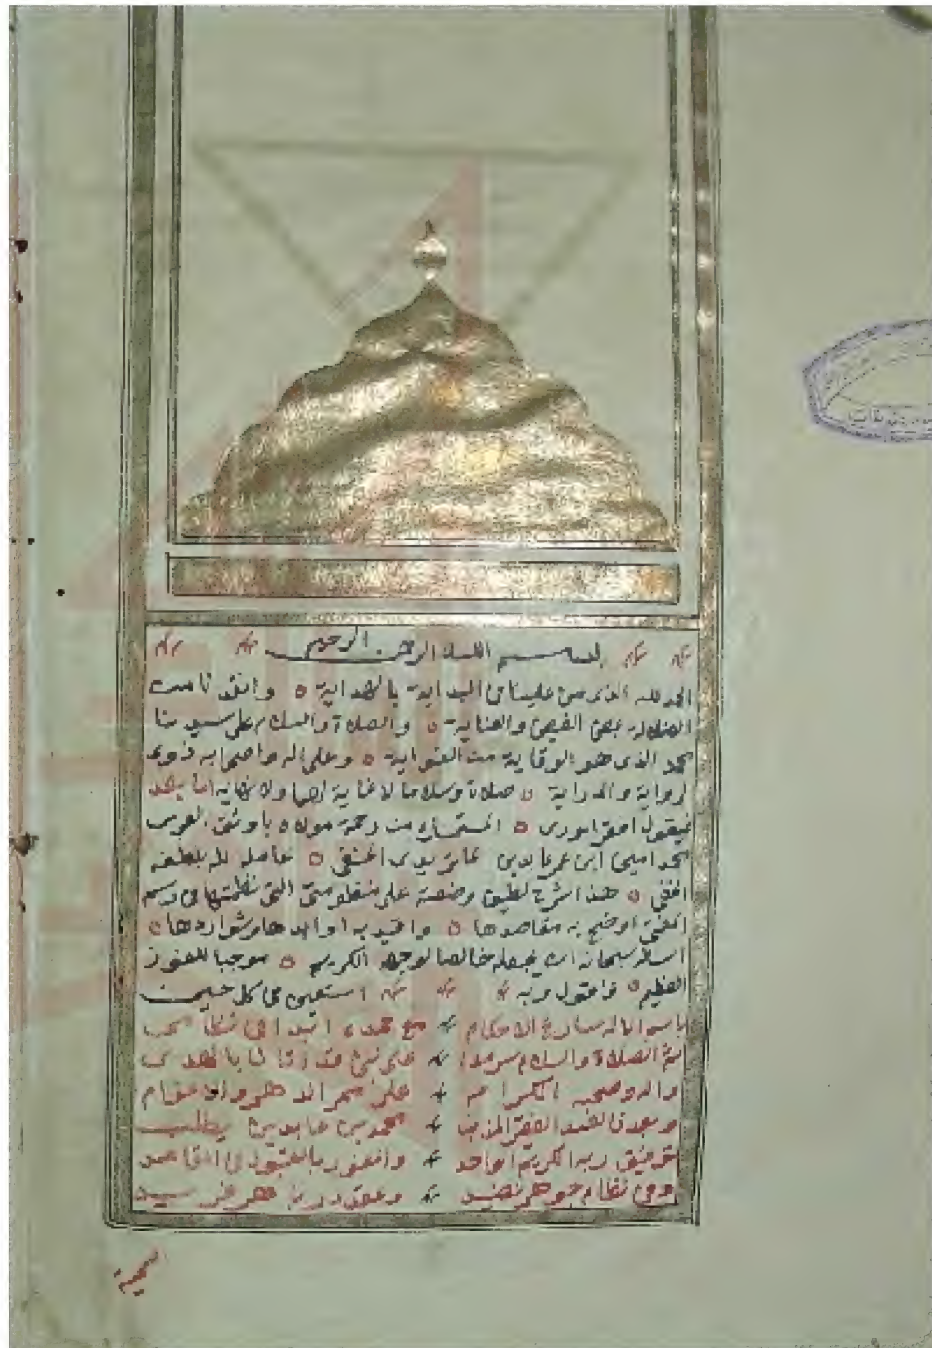 بسم الله الرحمن الرحيم
الحمد لله الذي من علينا في البداية بالهداية ه وانقذنا من
الضلالة بمحض الفيض والعناية ه والصلاة والسلام على سيدنا
محمد الذي هو الوقاية من الغواية ه وعلى اله واصحابه ذوى
الرواية والدراية ه صلاة وسلاما لا غاية لهما ولا نهاية اما بعد
فيقول افقر الورى ه المستمسك من رحمة مولاه باوثق العرى
محمد امين ابن عمر عابدين الماتريدى الحنفي ه عامله الله بلطفه
الخفي ه هذا شرح لطيف وضعته على منظومتى التى نظمتها فى رسم
المفتي اوضح به مقاصدها ه واقيد به اوابدها وشواردها ه
اسأله سبحانه ان يجعله خالصا لوجهه الكريم ه موجبا للفوز
العظيم ه فاقول وبه استعين فى كل حين
باسم الاله شارع الاحكام مع حمده ابدا فى نظامى
ثم الصلاة والسلام سرمدا على نبي قد اتانا بالهدى
واله وصحبه الكرام على ممر الدهر والاعوام
وبعد فالعبد الفقير المذنب محمد بن عابدين يطلب
توفيق ربه الكريم الواحد والفوز بالقبول فى المقاصد
وفى نظام جوهر نضيد وعقد در باهر فريد